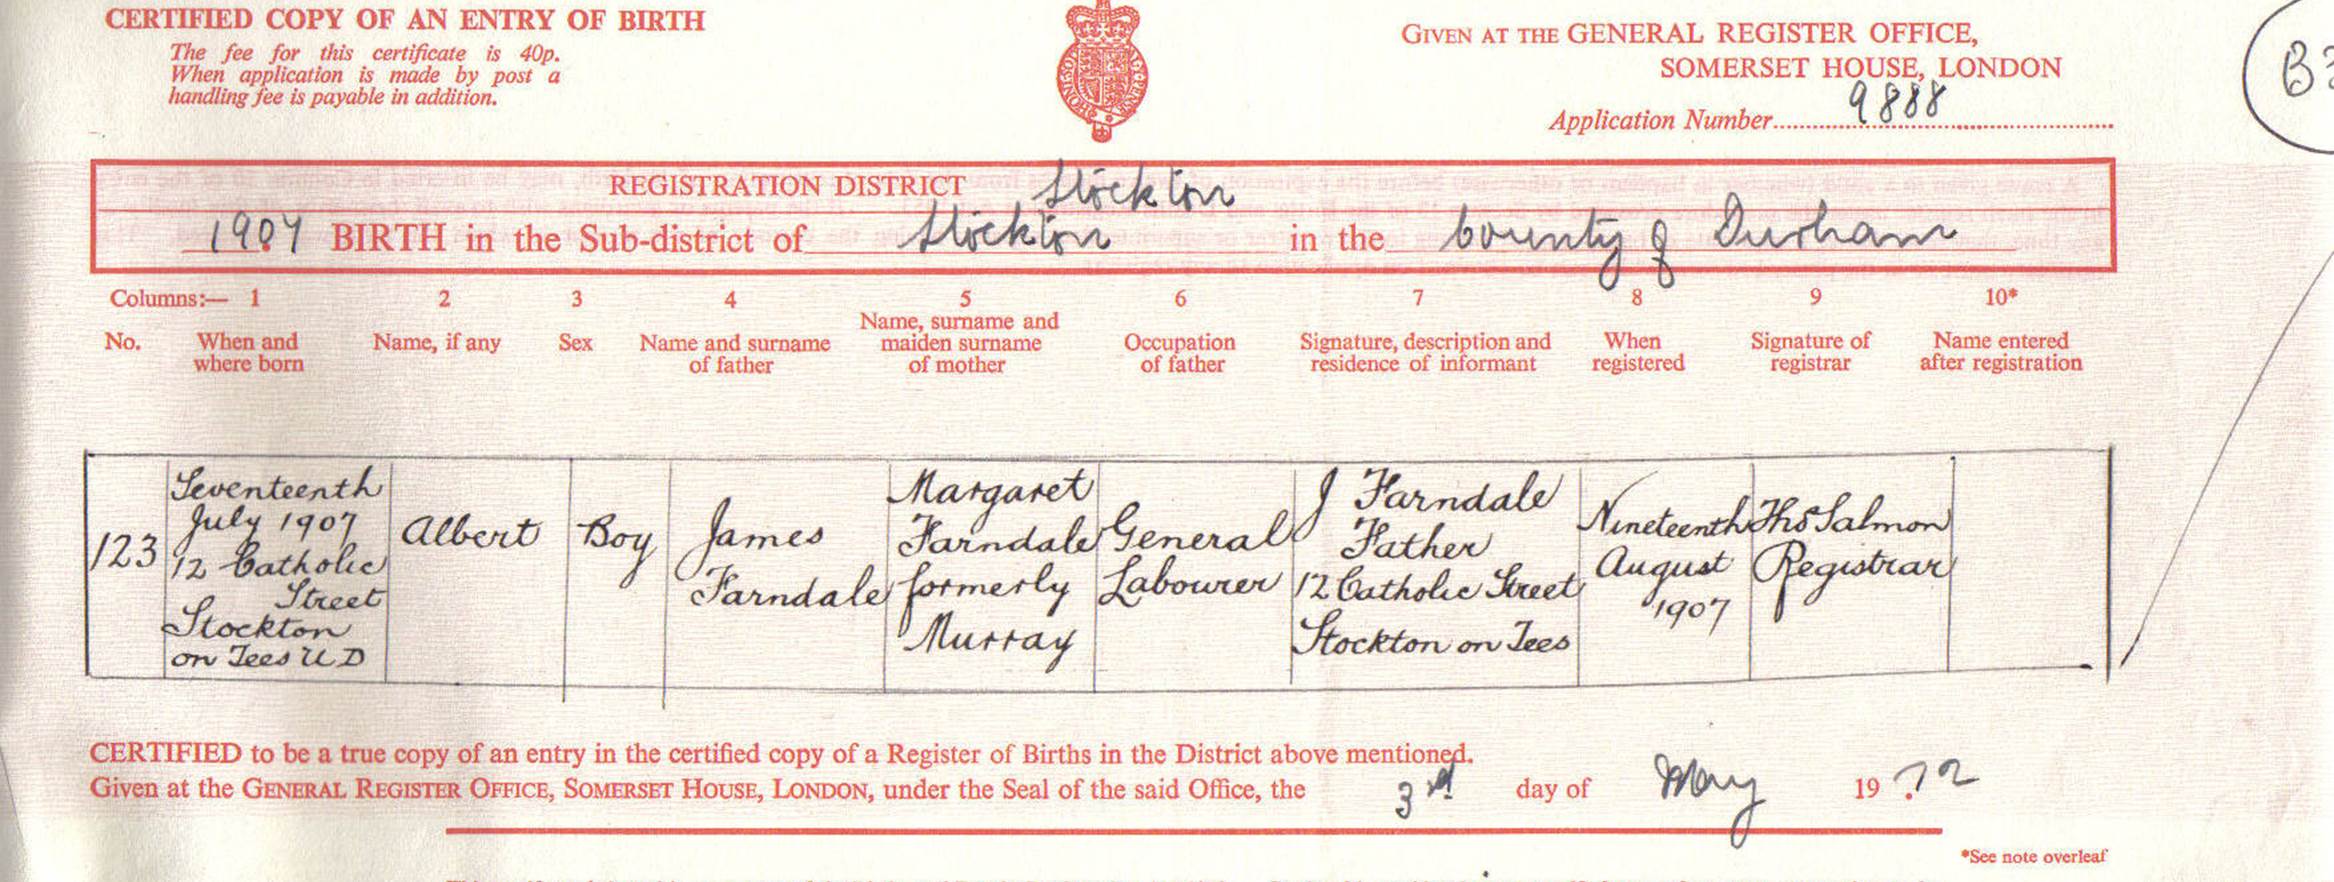 CERTIFIED COPY OF AN ENTRY OF BIRTH
The fee for this certificate is 40p.
When application is made by post a
handling fee is payable in addition.
GIVEN AT THE GENERAL REGISTER OFFICE,
SOMERSET HOUSE, LONDON
Application Number 9888
REGISTRATION DISTRICT Stockton
1907 BIRTH in the Sub-district of Stockton in the County of Durham
Columns:— 1 2 3 4 5 6 7 8 9 10*
No.
When and
where born
Name, if any
Sex
Name and surname
of father
Name, surname and
maiden surname
of mother
Occupation
of father
Signature, description and
residence of informant
When
registered
Signature of
registrar
Name entered
after registration
123
Seventeenth
July 1907
12 Catholic
Street
Stockton
on Tees U D
Albert
Boy
James
Farndale
Margaret
Farndale
formerly
Murray
General
Labourer
J Farndale
Father
12 Catholic Street
Stockton on Tees
Nineteenth
August
1907
Thos Salmon
Registrar
CERTIFIED to be a true copy of an entry in the certified copy of a Register of Births in the District above mentioned.
Given at the GENERAL REGISTER OFFICE, SOMERSET HOUSE, LONDON, under the Seal of the said Office, the 3rd day of May 1972
*See note overleaf